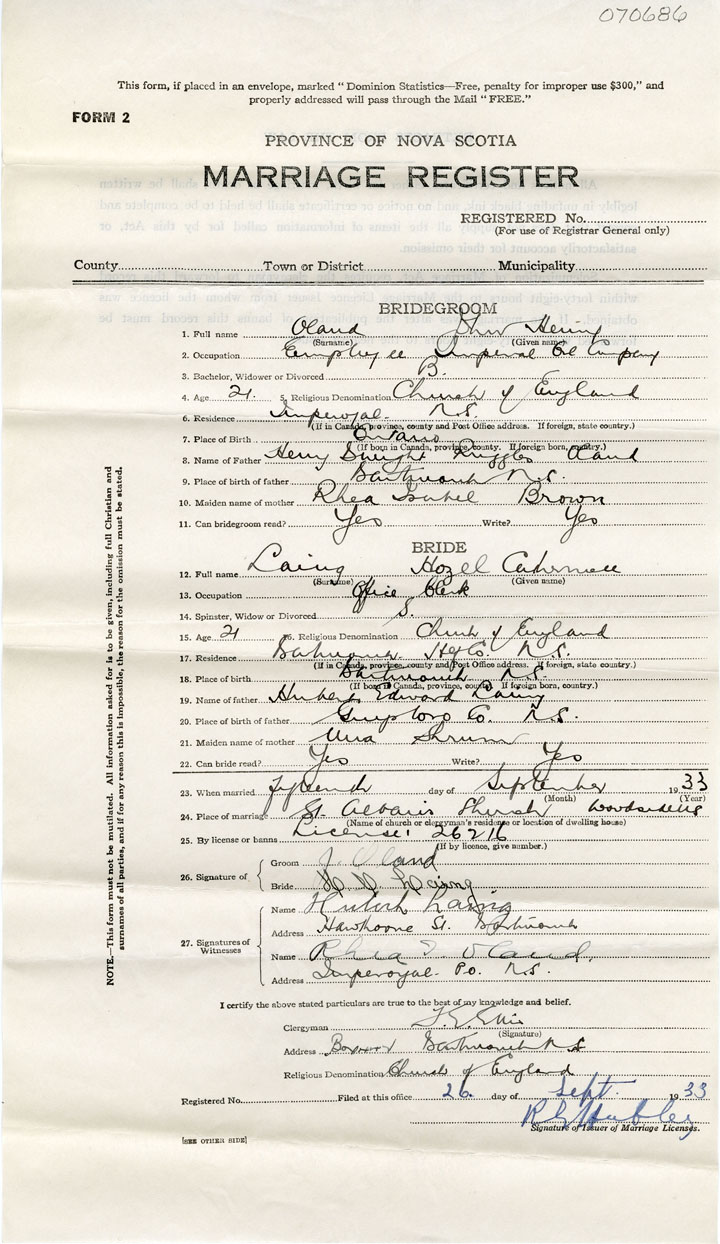 070686
This form, if placed in an envelope, marked " Dominion Statistics—Free, penalty for improper use $300," and
properly addressed will pass through the Mail " FREE."
FORM 2
PROVINCE OF NOVA SCOTIA
MARRIAGE REGISTER
REGISTERED No.
(For use of Registrar General only)
County Town or District Municipality
BRIDEGROOM
1. Full name Oland John Henry
(Surname) (Given name)
2. Occupation Employee Imperial Oil Company
3. Bachelor, Widower or Divorced B.
4. Age 21. 5. Religious Denomination Church of England
6. Residence Imperoyal. N.S.
(If in Canada, province, county and Post Office address. If foreign, state country.)
7. Place of Birth Ontario
(If born in Canada, province, county. If foreign born, country.)
8. Name of Father Henry Dwight Ruggles Oland
9. Place of birth of father Dartmouth N.S.
10. Maiden name of mother Rhea Isabel Brown
11. Can bridegroom read? Yes Write? Yes
BRIDE
12. Full name Laing Hazel
(Surname) (Given name)
13. Occupation Office Clerk
14. Spinster, Widow or Divorced S.
15. Age 21 16. Religious Denomination Church of England
17. Residence Dartmouth Hfx Co. N.S.
(If in Canada, province, county and Post Office address. If foreign, state country.)
18. Place of birth Dartmouth N.S.
(If born in Canada, province, county. If foreign born, country.)
19. Name of father Hubert Edward Laing
20. Place of birth of father Guysboro Co. N.S.
21. Maiden name of mother Una Shrum
22. Can bride read? Yes Write? Yes
23. When married day of September 1933
(Month) (Year)
24. Place of marriage St. Albans Church Woodside NS
(Name of church or clergyman's residence or location of dwelling house)
25. By license or banns License: 26216
(If by licence, give number.)
26. Signature of
Groom J. Oland
Bride Laing
27. Signatures of Witnesses
Name Hubert Laing
Address Hawthorne St. Dartmouth
Name Rhea I. Oland.
Address Imperoyal. P.O. N.S.
I certify the above stated particulars are true to the best of my knowledge and belief.
Clergyman
(Signature)
Address Dartmouth N.S
Religious Denomination Church of England
Registered No. Filed at this office 26. day of Sept. 1933
Signature of Issuer of Marriage Licenses.
[SEE OTHER SIDE]
NOTE.—This form must not be mutilated. All information asked for is to be given, including full Christian and
surnames of all parties, and if for any reason this is impossible, the reason for the omission must be stated.